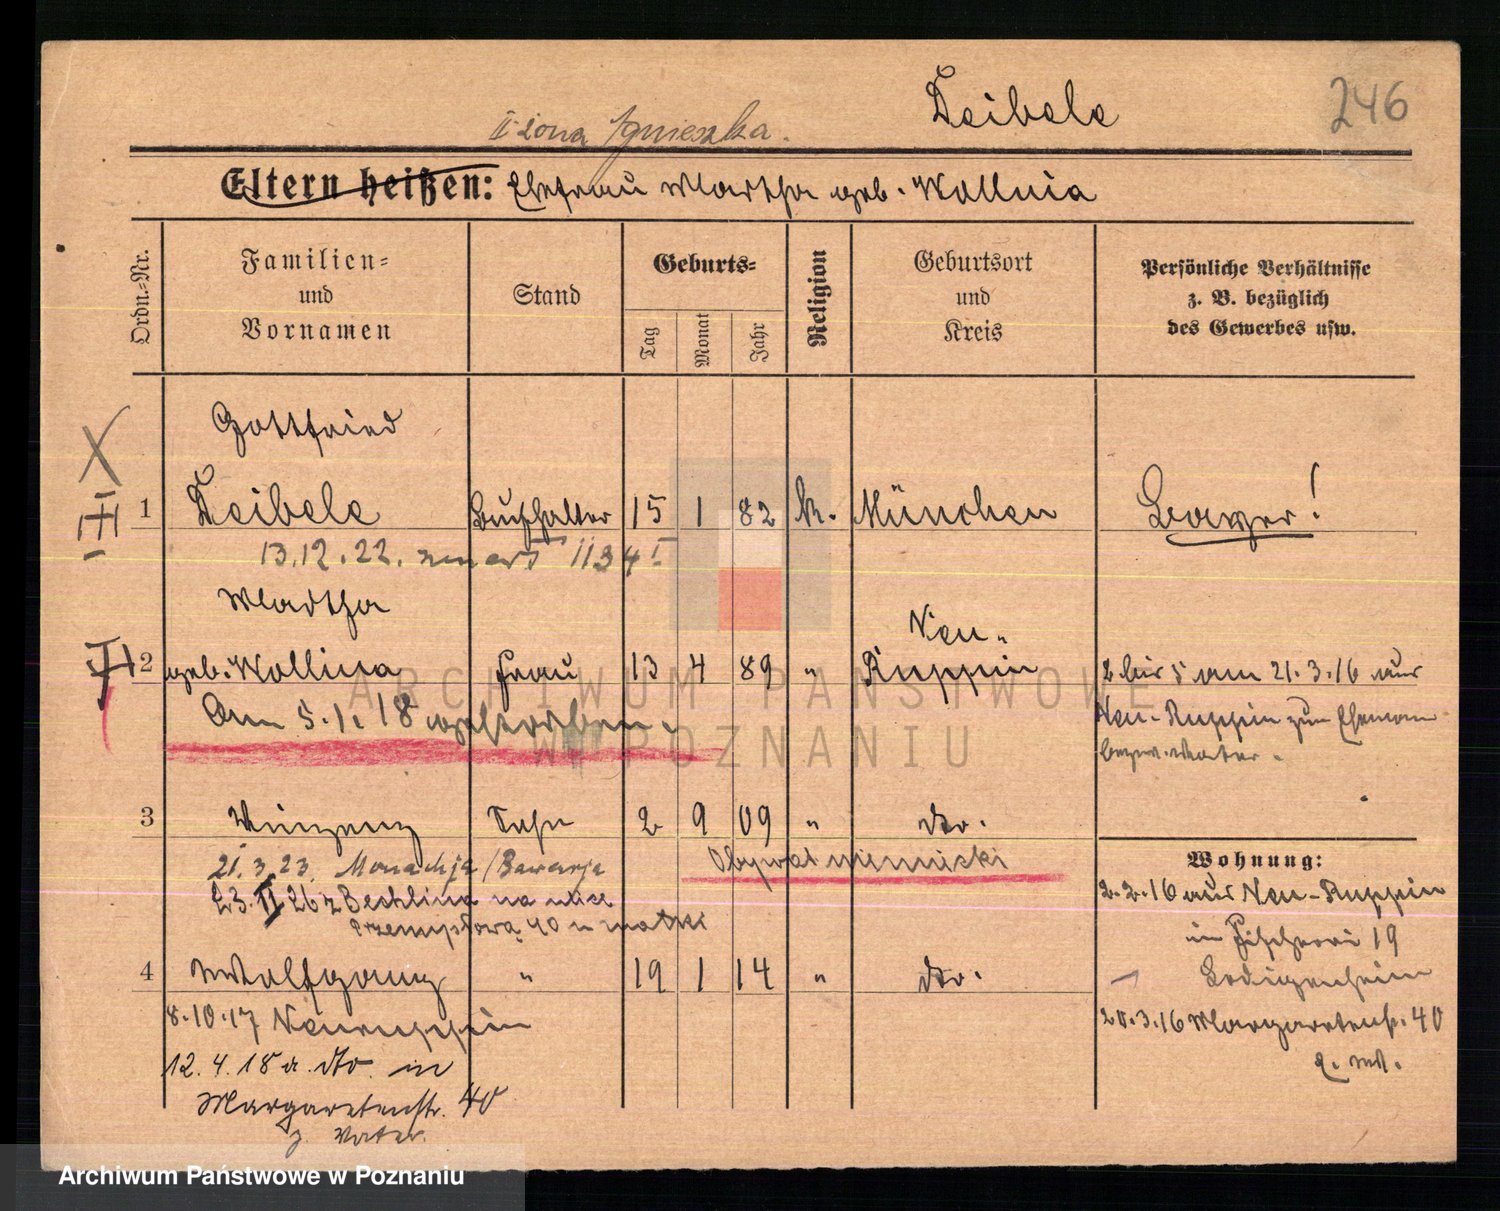 Deibele
246
II żona Agnieszka.
Eltern heißen: Ehefrau Martha geb. Wollnia
Ordn.-Nr.
Familien-
und
Vornamen
Stand
Geburts-
Tag
Monat
Jahr
Religion
Geburtsort
und
Kreis
Persönliche Verhältnisse
z. B. bezüglich
des Gewerbes usw.
Gottfried
1 Deibele Buchhalter 15 1 82 k. München Bayer!
13.12.22. zmarł 1134 I
Martha
Neu-
2 geb. Wollina Frau 13 4 89 " Ruppin 2 bis 5 am 21.3.16 aus
Am 5.1.18 gestorben. Neu-Ruppin zum Ehemann
bezw. Vater.
3 Vinzenz Sohn 2 9 09 " dto.
21.3.23. Monachja /Bawarja Obywat niemiecki
23. II 26 z Bechlina na ulice
Przemysłową 40 u matki
Wohnung:
2.2.16 aus Neu-Ruppin
in Fischerei 19
4 Wolfgang " 19 1 14 " dto.
8.10.17 Neuruppin
20.3.16 Margaretenstr. 40
12.4.18 a. dto. in
Margaretenstr. 40
z. Vater.
ARCHIWUM PAŃSTWOWE
W POZNANIU
Archiwum Państwowe w Poznaniu